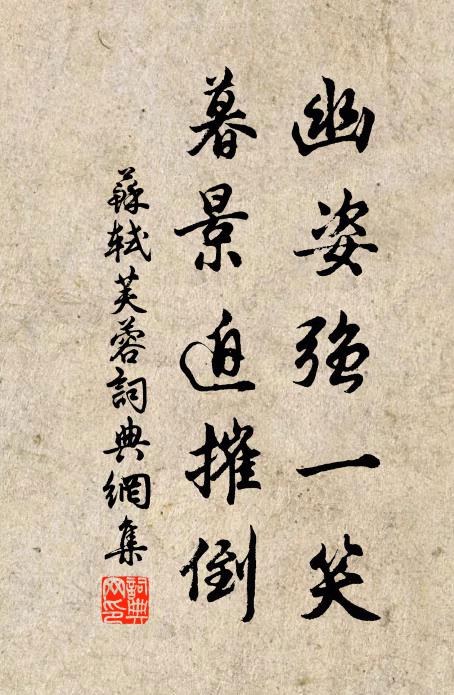 幽姿強一笑
暮景迫摧倒
蘇軾芙蓉詞典網集
詞典網印